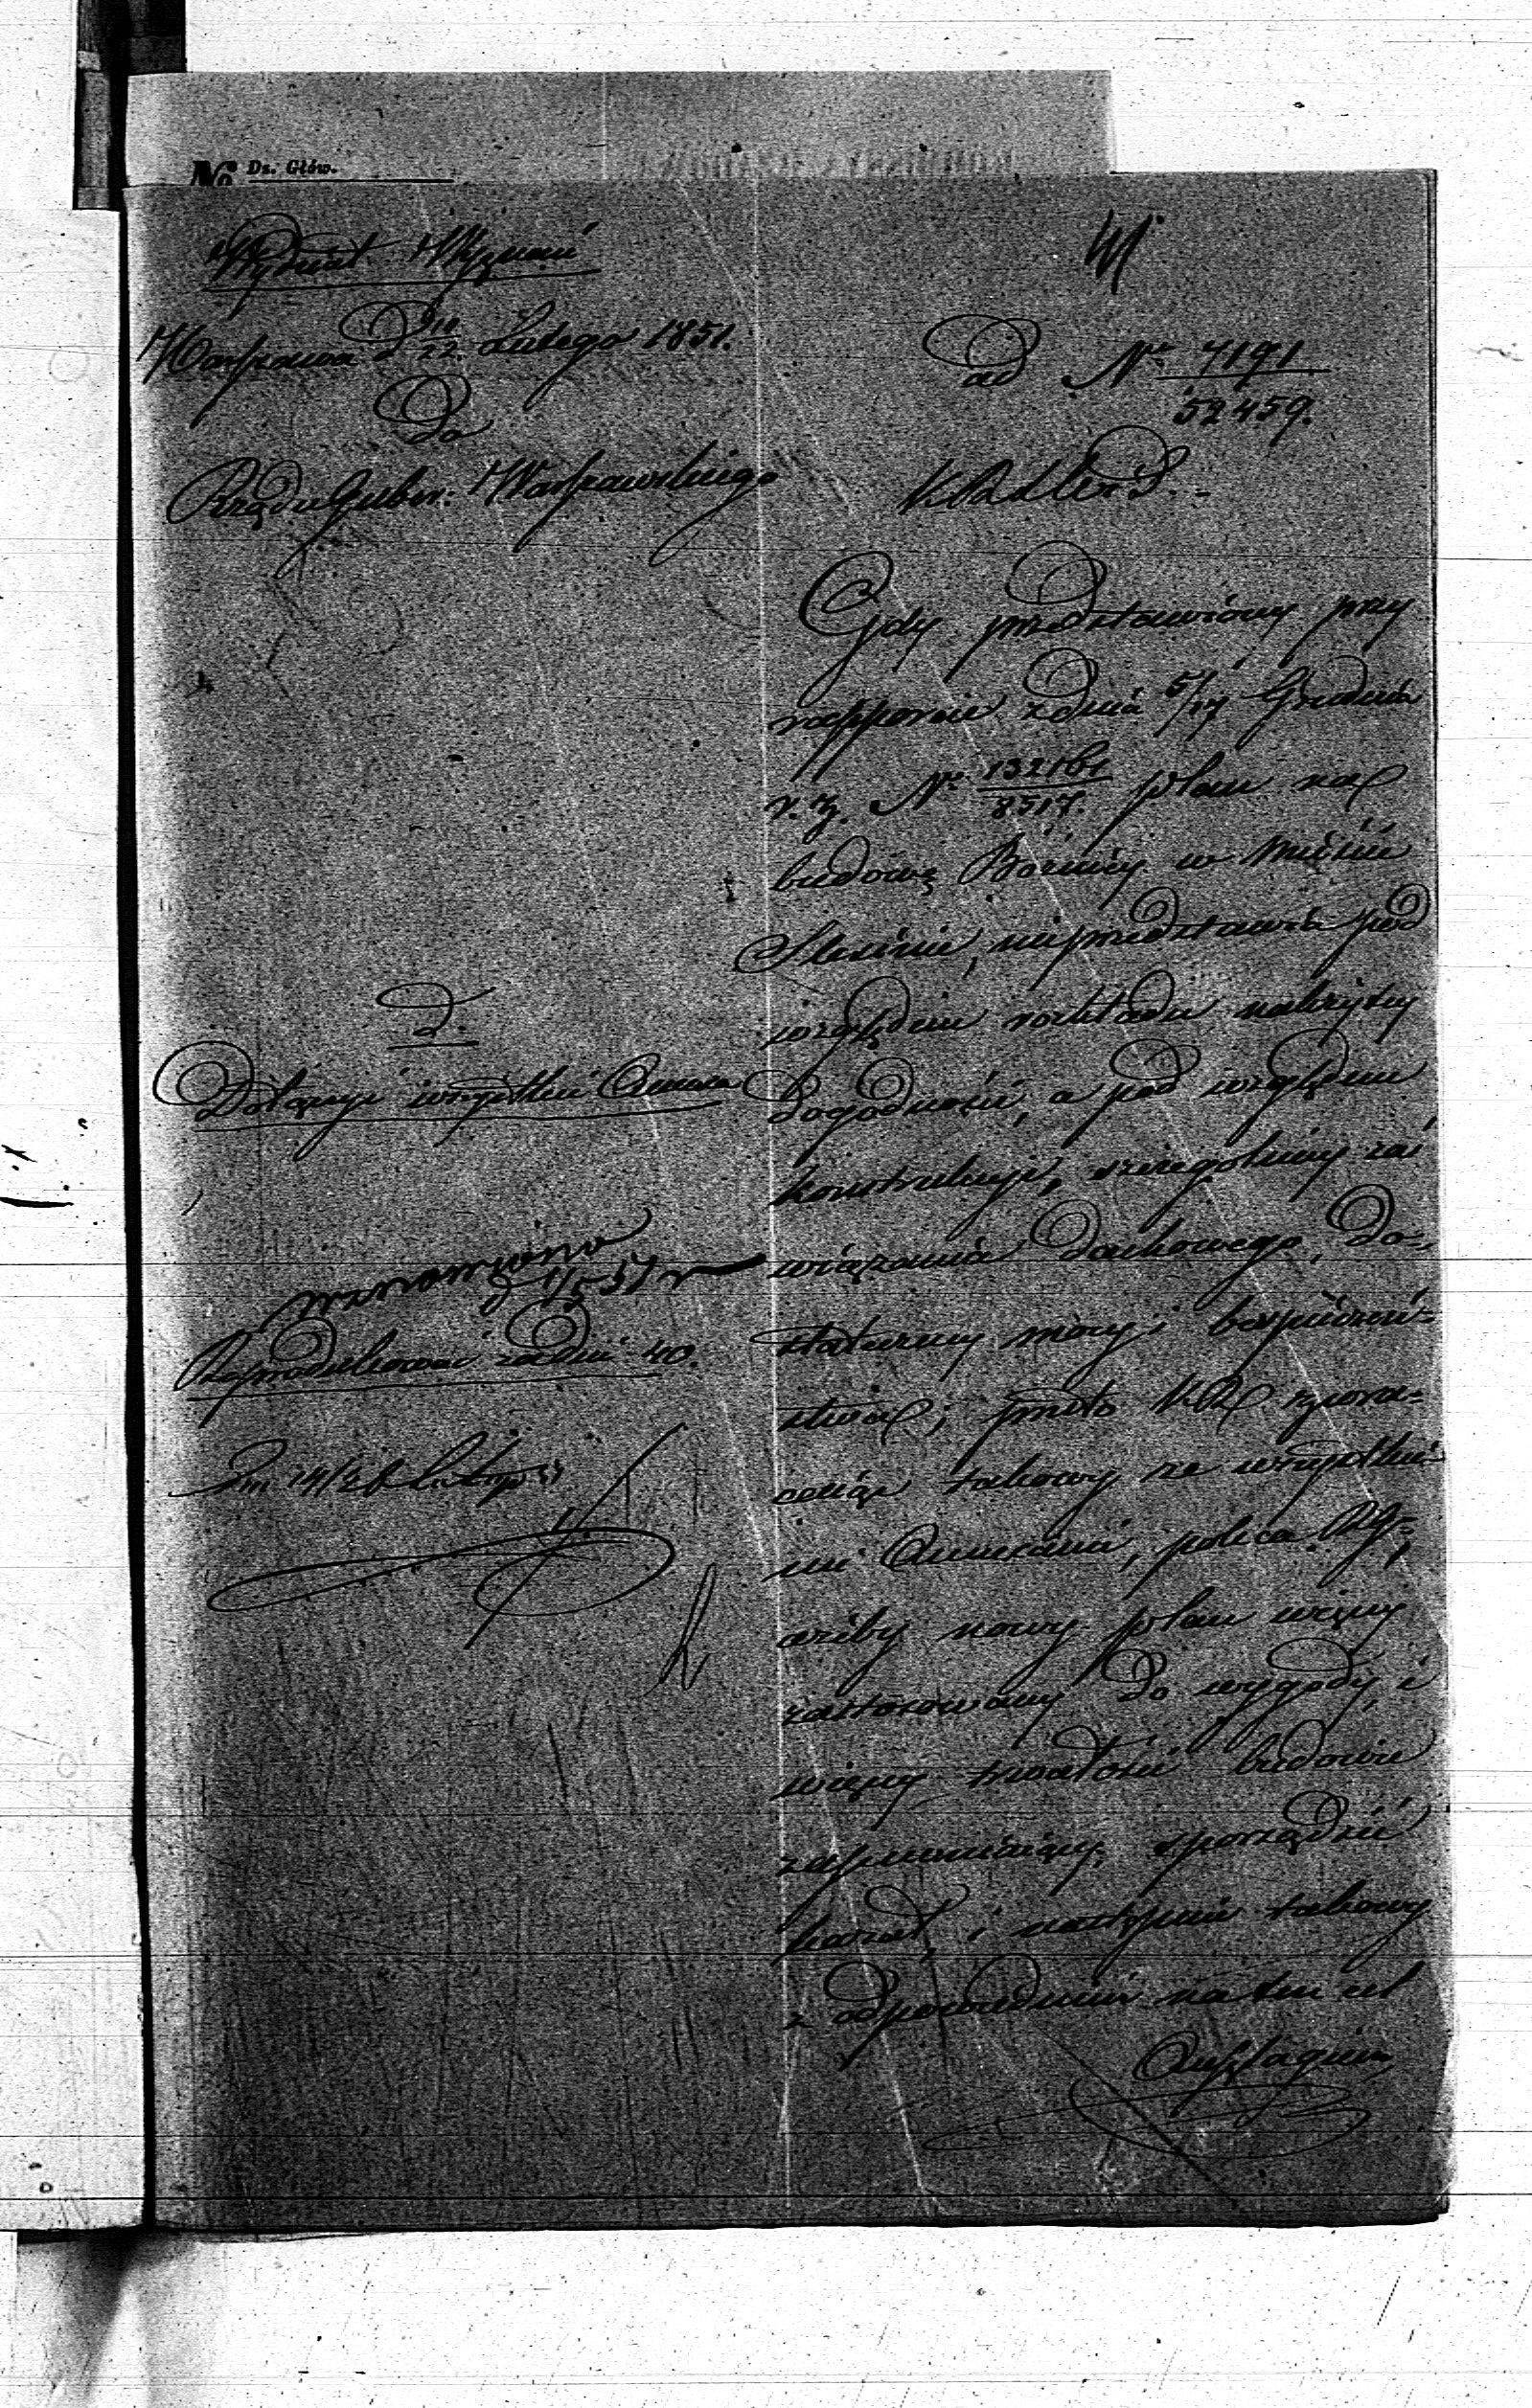 No Dz. Głów.
Wydział Wyznań
Warszawa d 10/22 Lutego 1851.
Do
Rządu Guber. Warszawskiego
ad Nr 7191/52459.
K.R.S.W.i D.
Gdy przedstawiony przy
rapporcie z dnia 5/17 Grudnia
r. z. Nr 132161/8517. plan na
budowę Bożnicy w mieście
Slesinie, nieprzedstawia pod
względem rozkładu należytej
dogodności, a pod względem
konstrukcyi, szczególniej zaś
wiązania dachowego, do-
statecznej mocy i bezpieczeń-
stwa; przeto K.R. zwra-
cając takowy ze wszystkie-
mi Annexami, poleca R.G.,
ażeby nowy plan więcej
zastosowany do wygody i
więcej trwałości budowie
zapewniający, sporządzić
kazał, i następnie takowy
z odpowiednim na ten cel
Anszlagiem
D.
Dołączyć wszystkie Annexa
wznowiono
d 1/5 51 r
Reprodukować za dni 40.
Dn 14/26 Lutego 51